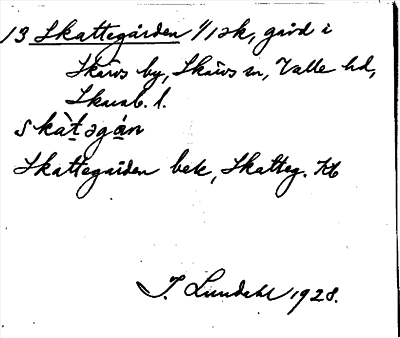 13 Skattegården 1/1 sk, gård i
Skärvs by, Skärvs sn, Valle hd,
Skarab. l.
skàtəgán
Skattegården bek, Skatteg. Kb
I. Lundahl 1928.